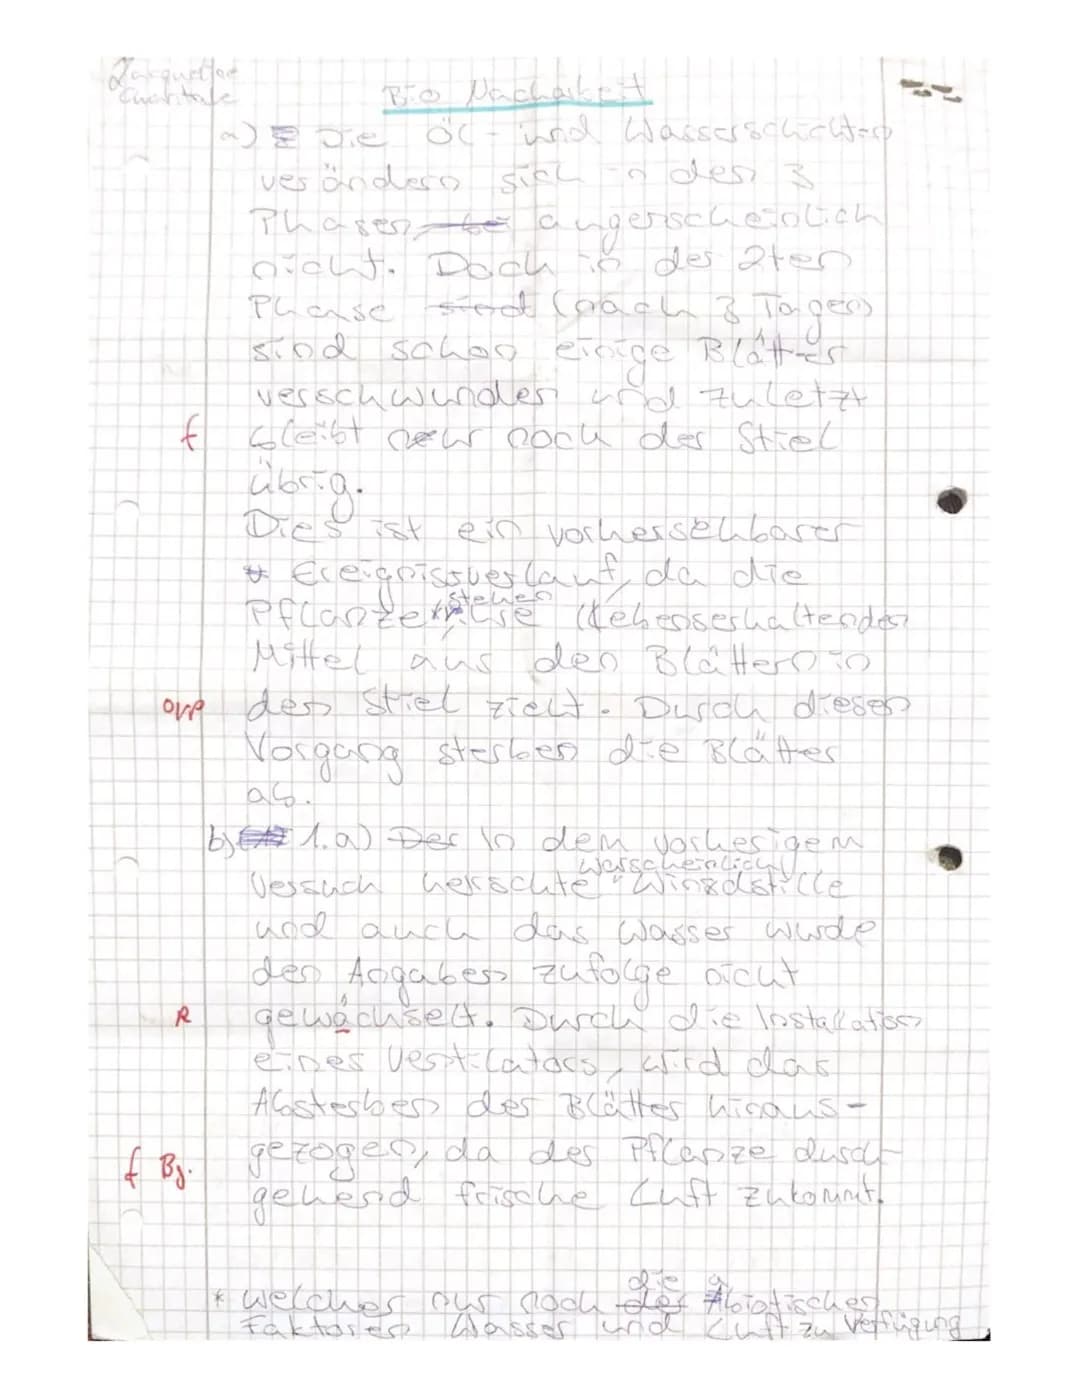 Bio Nacharbeit
a) Die Öl- und Wasserschichten
verändern sich in den 3
Phasen augenscheinlich
nicht. Doch in der 2ten
Phase sind (nach 3 Tagen)
sind schon einige Blätter
verschwunden und zuletzt
f bleibt nur noch der Stiel
übrig.
Dies ist ein vorhersehbarer
* Ereignissverlauf, da die
stehen
Pflanze* ihre lebenserhaltenden
Mittel aus den Blättern in
den Stiel zieht. Durch diesen
Vorgang sterben die Blätter
ab.
b) 1.a) Der In dem vorherigem
warscheinlich
Versuch herrschte Windstille
und auch das Wasser wurde
den Angaben zufolge nicht
R gewächselt. Durch die Installation
eines Ventilators, wird das
Absterben der Blätter hinaus-
f Bz. gezogen, da der Pflanze durch-
gehend frische Luft zukommt.
die a
* welcher nur noch der Abiotischen
Faktoren Wasser und Luft zu Verfügung